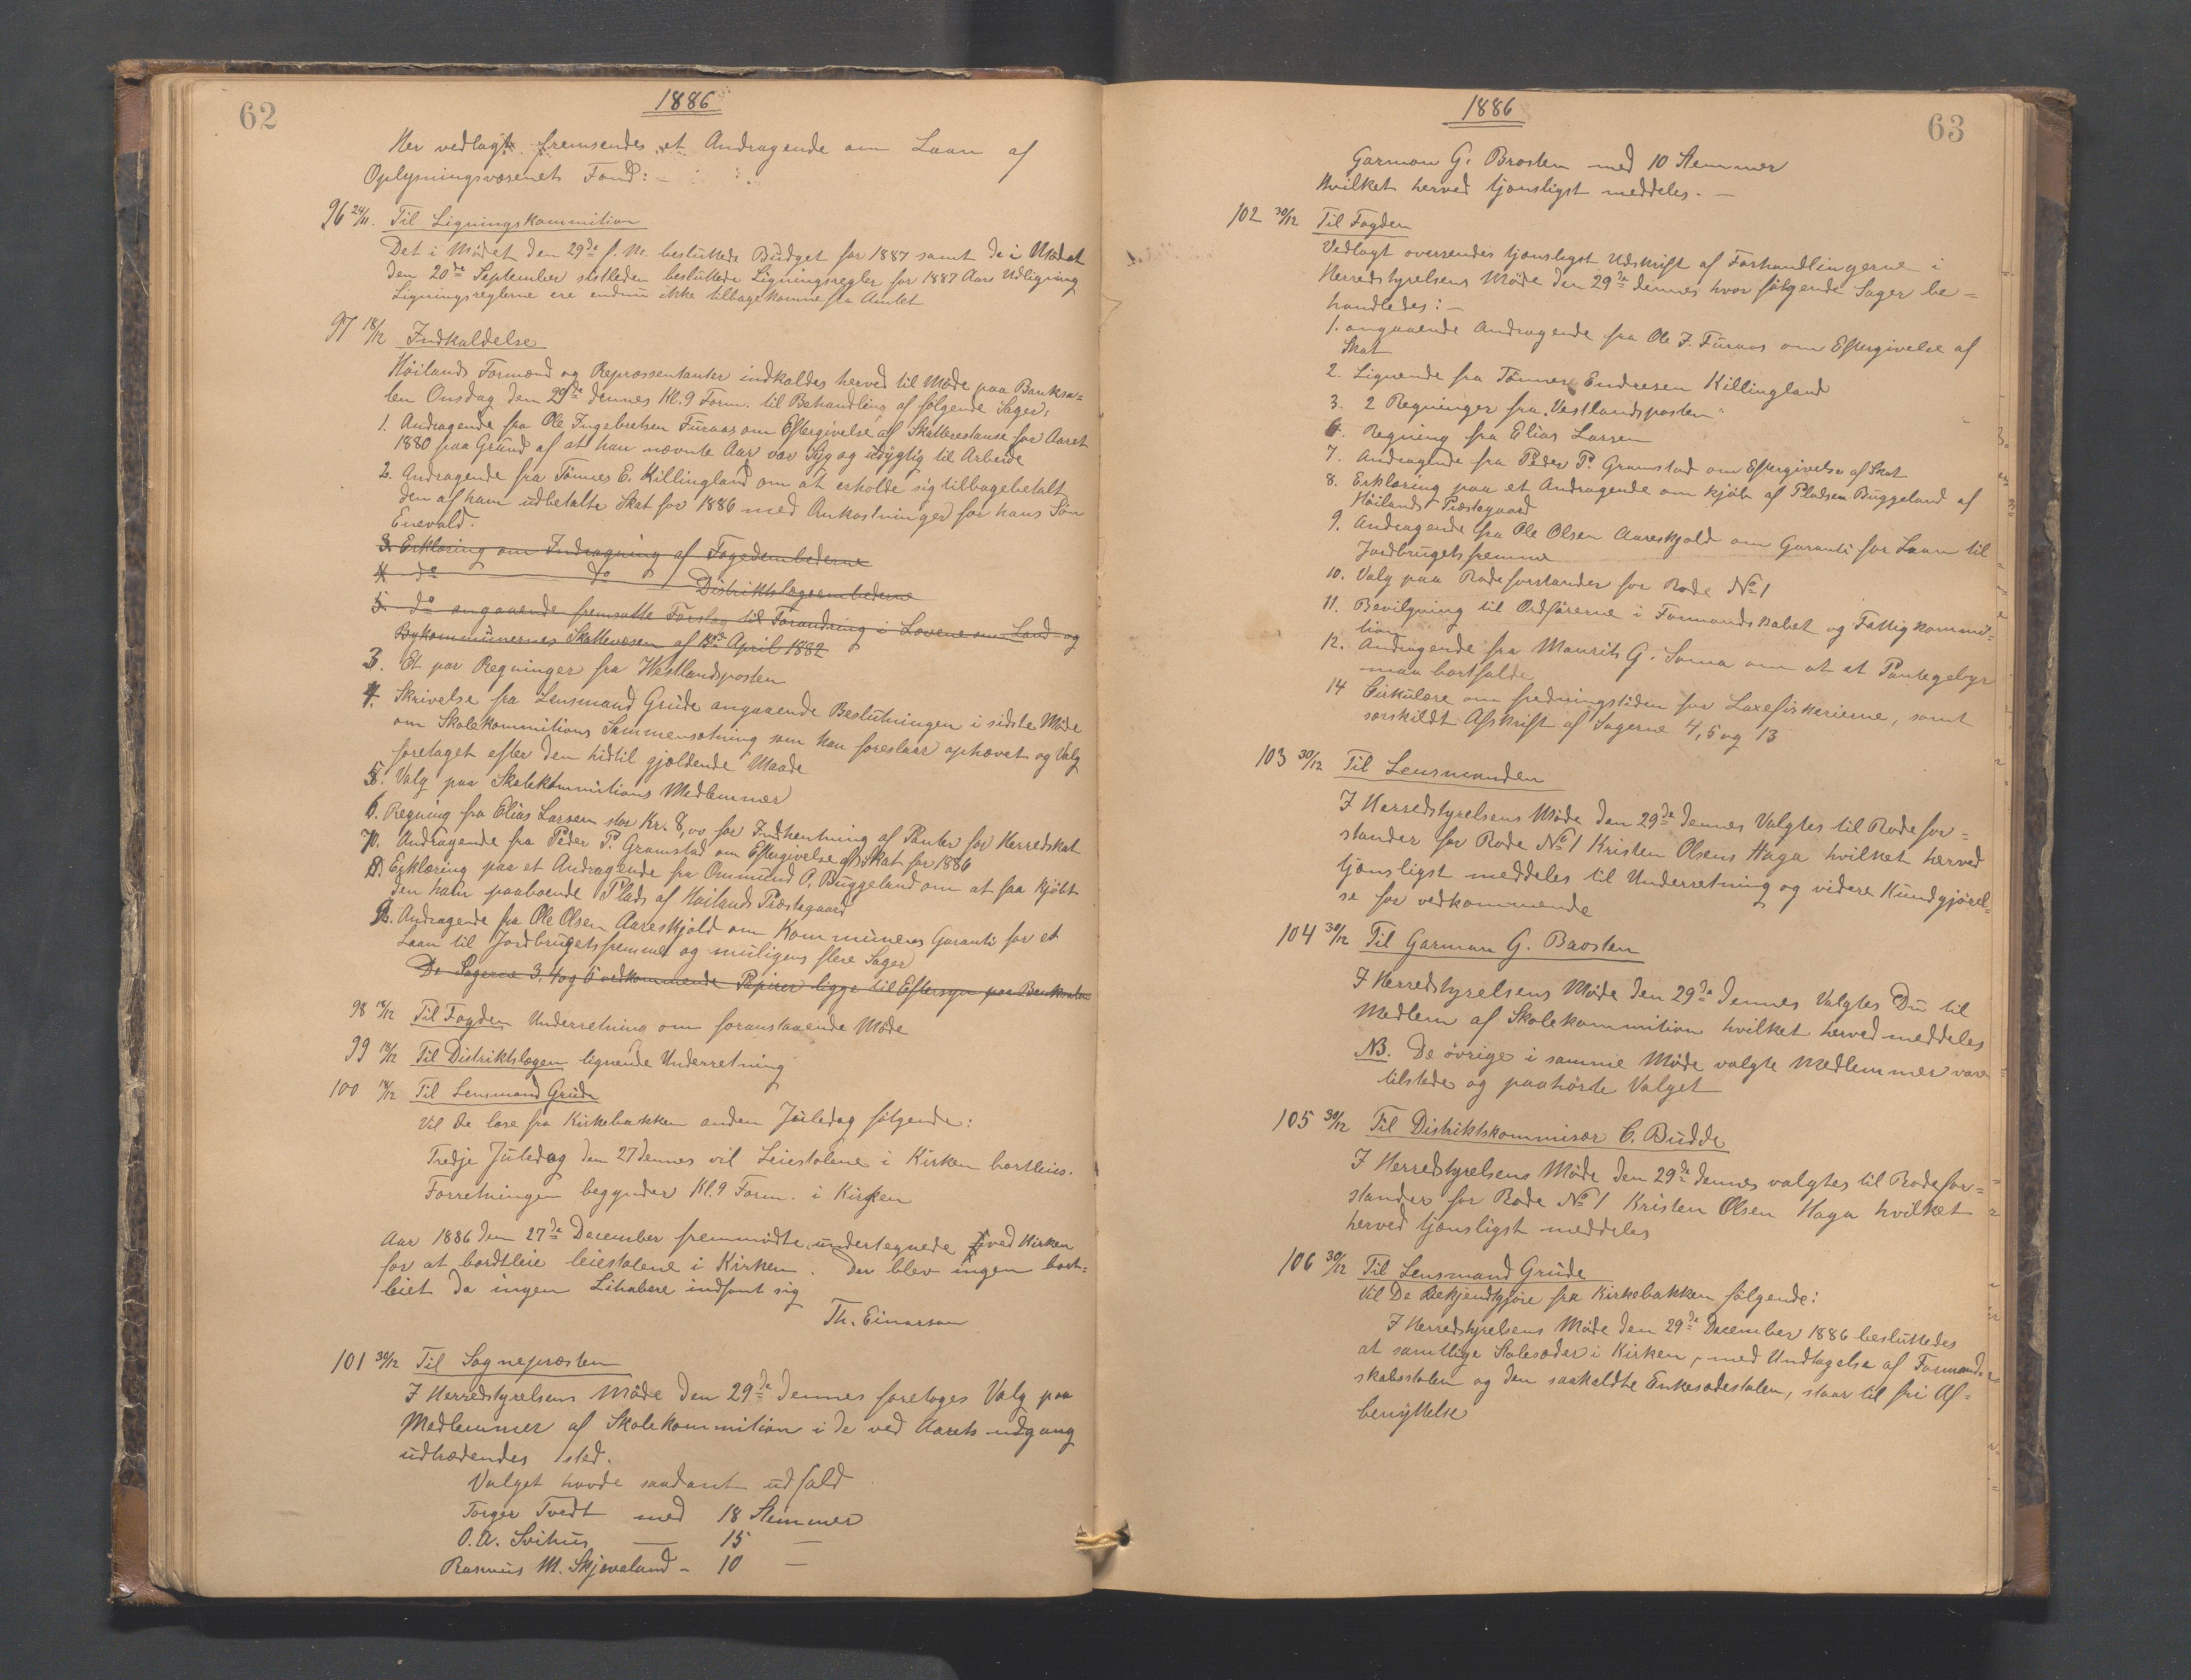 62
1886
Her vedlagt fremsendes et Andragende om Laan af
Oplysningsvæsenets Fond:
96 24/11. Til Ligningskommition
Det i Mödet den 29de f. M. besluttede Büdget for 1887 samt de i Mödet
den 20de September sistleden besluttede Ligningsregler for 1887 Aars Udligning
Ligningsreglerne ere endnu ikke tilbagekomne fra Amtet
97 18/12 Indkaldelse
Höilands Formænd og Repræssentanter indkaldes herved til Möde paa Banksa=
len Onsdag den 29de dennes Kl. 9 Form. til Behandling af fölgende Sager:
1. Andragende fra Ole Ingebretsen Furaas om Eftergivelse af Skatterestanse for Aaret
1880 paa Grund af at han nævnte Aar var Syg og udygtig til Arbeide
2. Andragende fra Tönnes E. Killingland om at erholde sig tilbagebetalt
den af ham udbetalte Skat for 1886 med Omkostninger for hans Sön
Enevald.
3. Erklæring om Inddragning af Fogedembederne
4 do do Distriktslægeembederne
5. do angaaende fremsatte Forslag til Forandring i Lovene om Land og
Bykommünernes Skattevæsen af 15de April 1882
3. Et par Regninger fra Vestlandsposten
4. Skrivelse fra Lensmand Grüde angaaende Beslutningen i sidste Möde
om Skolekommitions Sammensætning som han foreslaar ophævet og Valg
foretaget efter den hidtil gjældende Maade
5. Valg paa Skolekommitions Medlemmer
6. Regning fra Elias Larsen stor Kr. 8,00 for Indhentning af Panter for Herredskat
7. Andragende fra Peder P. Gramstad om Eftergivelse af Skat for 1886
8. Erklæring paa et Andragende fra Ommund A. Buggeland om at faa kjöbt
den ham paaboende Plads af Höilands Præstegaard
9. Andragende fra Ole Olsen Aareskjold om Kommünens Garanti for et
Laan til Jordbrugets fremme og muligens flere Sager
De Sagerne 3, 4 og 5 vedkommende Papirer ligge til Eftersyn paa Banksalen
98 18/12 Til Fogden Underretning om foranstaaende Möde
99 18/12 Til Distriktslægen lignende Underretning
100 18/12 Til Lensmand Grüde
Vil De læse fra Kirkebakken anden Juledag fölgende:
Tredje Juledag den 27 dennes vil Leiestolene i Kirken bortleies.
Forretningen begynder Kl. 9 Form. i Kirken
Aar 1886 den 27de December fremmödte undertegnede ved Kirken
for at bordtleie leiestolene i Kirken. Der blev ingen bort=
leiet da ingen Lihabere indfant sig
Th. Einarsen
101 30/12 Til Sognepræsten
I Herredstyrelsens Möde den 29de dennes foretoges Valg paa
Medlemmer af Skolekommition i de ved Aarets udgang
udtrædendes sted.
Valget havde saadant udfald
Torger Tvedt med 18 Stemmer
O. A. Svihus — 15 —
Rasmus M. Skjæveland - 10 —
1886
63
Garman G. Brosten med 10 Stemmer
Hvilket herved tjænsligst meddeles. —
102 30/12 Til Fogden
Vedlagt oversendes tjænsligst Udskrift af Forhandlingerne i
Herredstyrelsens Möde den 29de dennes hvor fölgende Sager be=
handledes: —
1. angaaende Andragende fra Ole I. Furaas om Eftergivelse af
Skat
2. Lignende fra Tönnes Endresen Killingland
3. 2 Regninger fra "Vestlandsposten"
6. Regning fra Elias Larsen
7. Andragende fra Peder P. Gramstad om Eftergivelse af Skat
8. Erklæring paa et Andragende om kjöb af Pladsen Buggeland af
Höilands Præstegaard
9. Andragende fra Ole Olsen Aareskjold om Garanti for Laan til
Jordbrugets fremme
10. Valg paa Rodeforstander for Rode No 1
11. Bevilgning til Ordförerne i Formandskabet og Fattigkommis=
tion
12. Andragende fra Maurits G. Soma om at et Pantegebyr
maa bortfalde
14 Cirkulære om fredningstiden for Laxefiskerierne, samt
særskildt Afskrift af Sagerne 4, 5 og 13
103 30/12 Til Lensmanden
I Herredstyrelsens Möde den 29de dennes Valgtes til Rodefor=
stander for Rode No 1 Kristen Olsens Haga hvilket herved
tjænsligst meddeles til Underretning og videre Kundgjörel=
se for vedkommende
104 30/12 Til Garman G. Brosten
I Herredstyrelsens Möde den 29de dennes Valgtes Du til
Medlem af Skolekommition hvilket herved meddeles
NB. De övrige i samme Möde valgte Medlemmer var
tilstede og paahörte Valget
105 30/12 Til Distriktskommisær C. Büdde
I Herredstyrelsens Möde den 29de dennes valgtes til Rodefor=
stander for Rode No 1 Kristen Olsen Haga hvilket
herved tjænsligst meddeles
106 30/12 Til Lensmand Grüde
Vil De bekjendtgjöre fra Kirkebakken fölgende:
I Herredstyrelsens Möde den 29de December 1886 besluttedes
at samtlige Stolesæder i Kirken, med Undtagelse af Formand-
skabsstolen og den saakaldte Enkesædestolen, staar til fri Af=
benyttelse